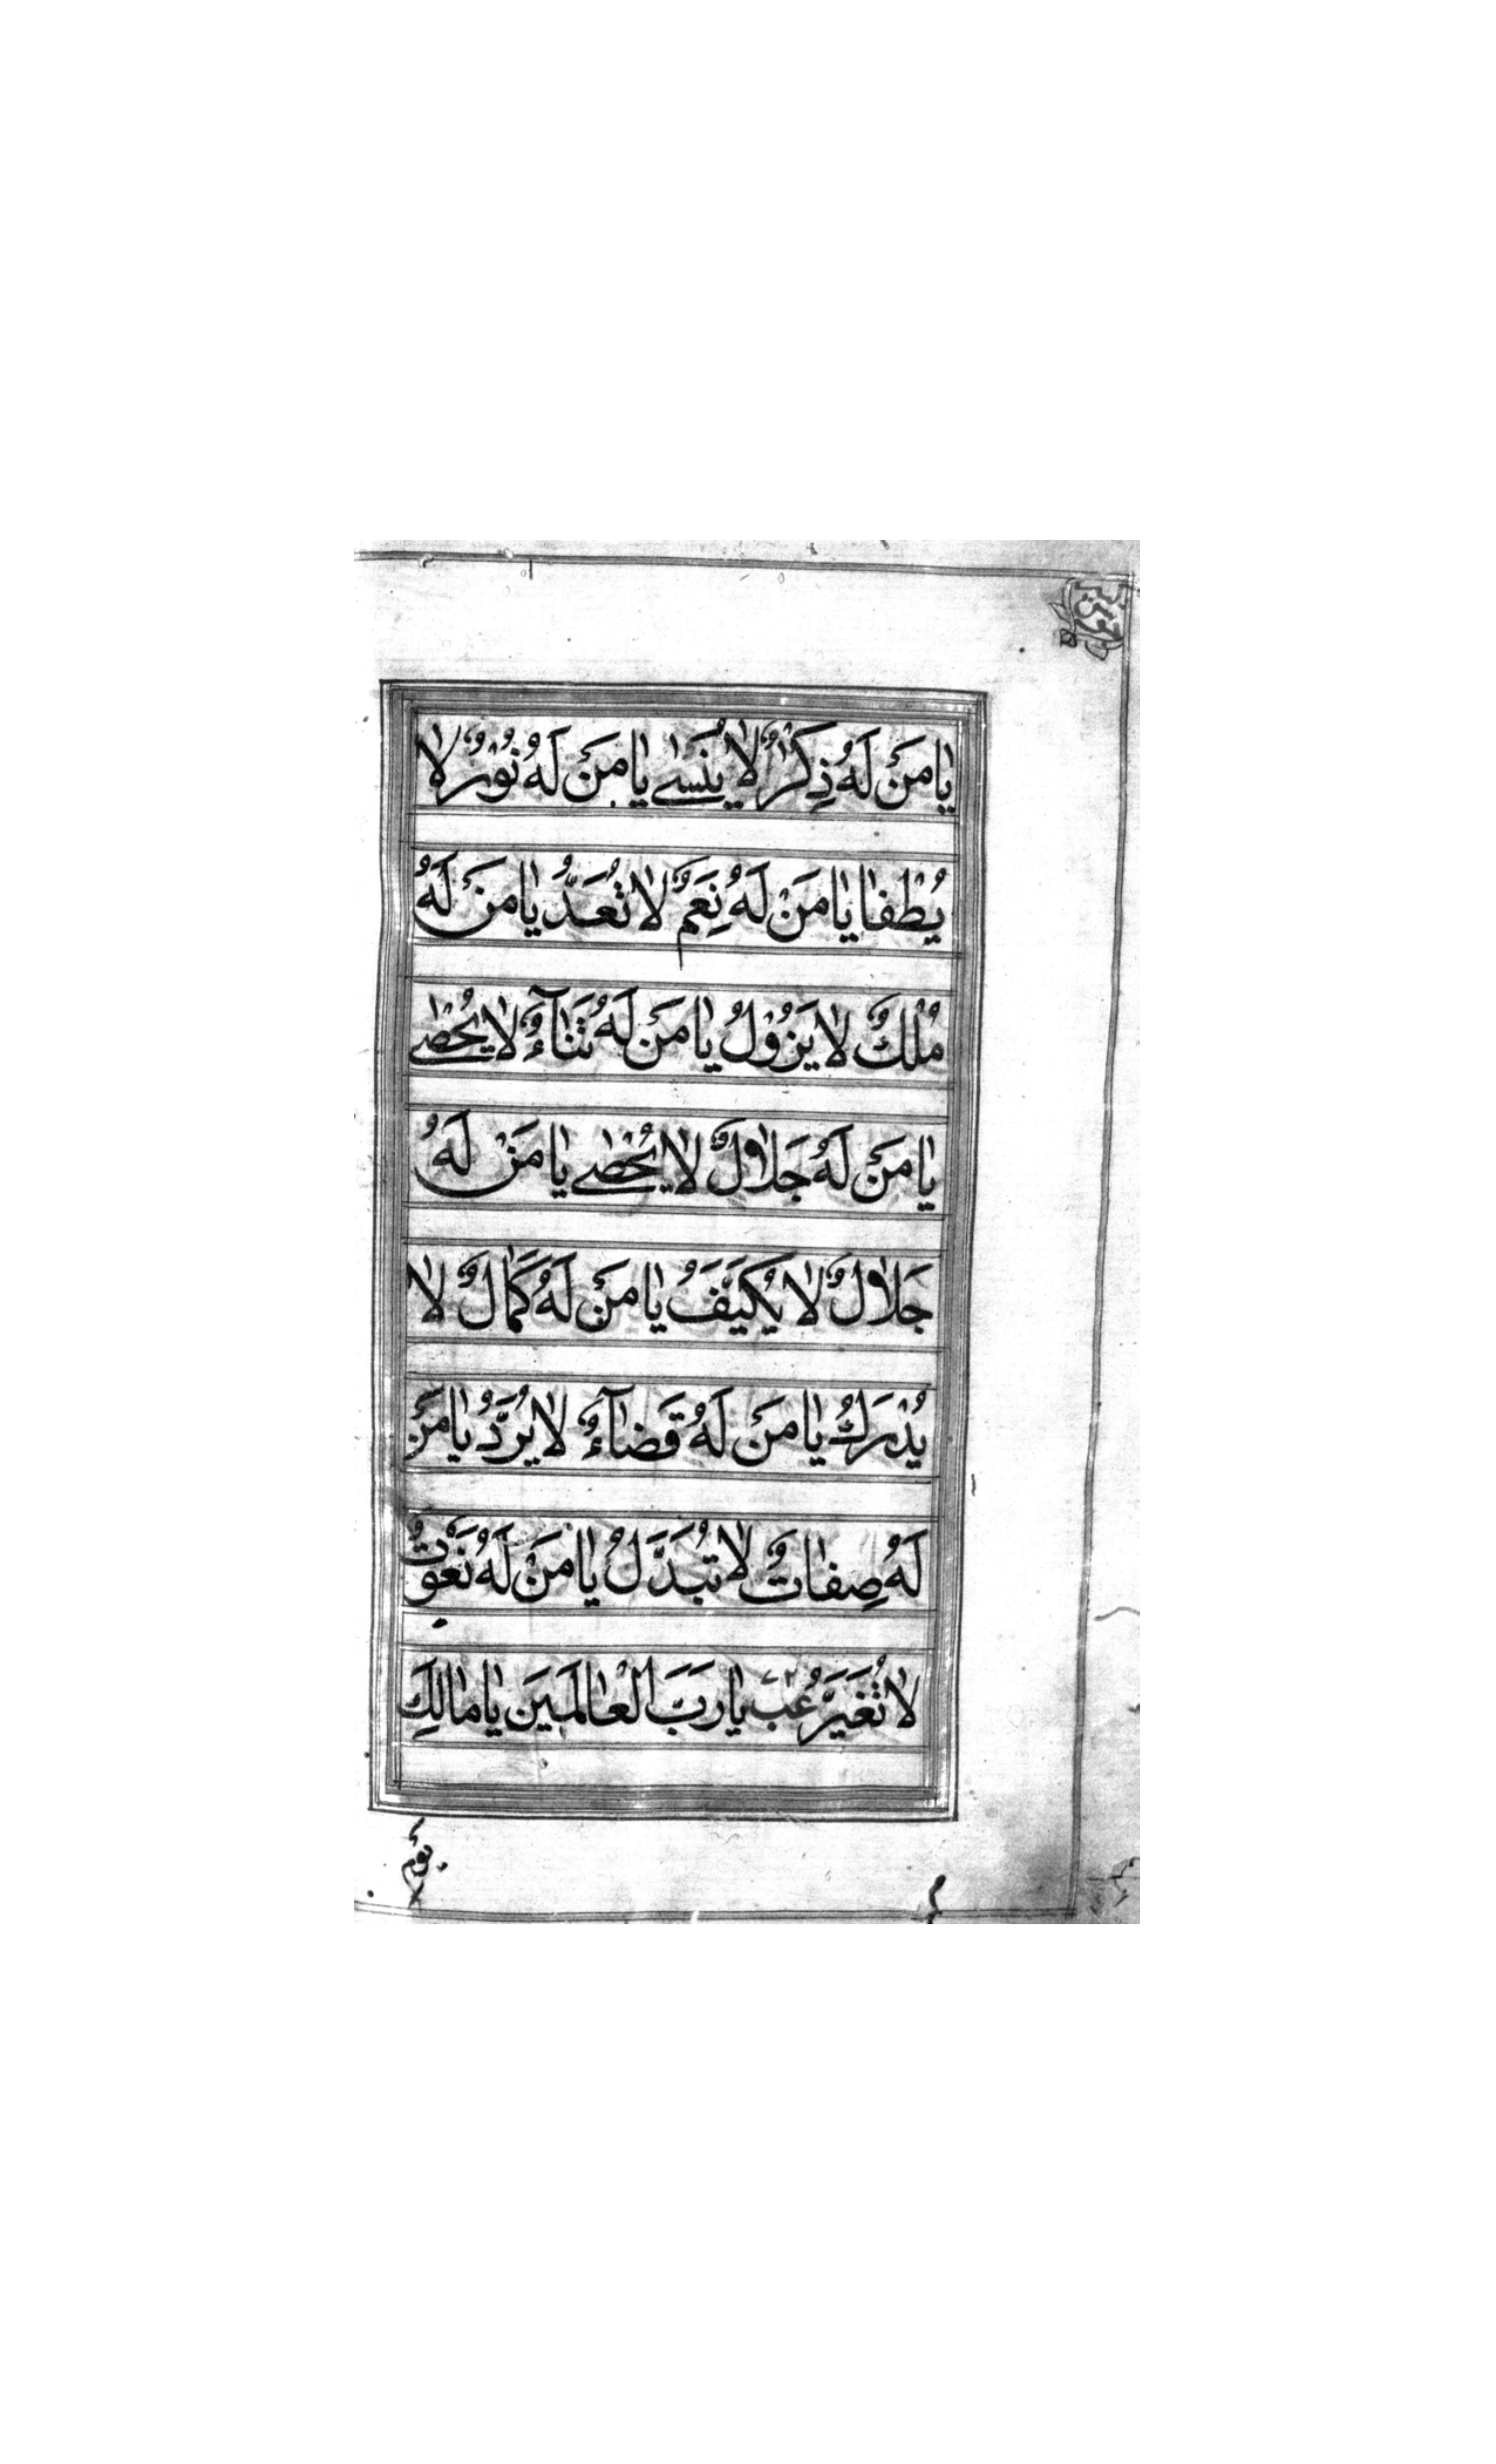 يَا مَنْ لَهُ ذِكْرٌ لَا يُنْسٰى يَا مَنْ لَهُ نُوْرٌ لَا
يُطْفَا يَا مَنْ لَهُ نِعَمٌ لَا تُعَدُّ يَا مَنْ لَهُ
مُلْكٌ لَا يَزُوْلُ يَا مَنْ لَهُ ثَنَآءٌ لَا يُحْصٰى
يَا مَنْ لَهُ جَلَالٌ لَا يُحْصٰى يَا مَنْ لَهُ
جَلَالٌ لَا يُكَيَّفُ يَا مَنْ لَهُ كَمَالٌ لَا
يُدْرَكُ يَا مَنْ لَهُ قَضَآءٌ لَا يُرَدُّ يَا مَنْ
لَهُ صِفَاتٌ لَا تُبَدَّلُ يَا مَنْ لَهُ نَعُوْتٌ
لَا تُغَيَّرُ يَا رَبَّ الْعَالَمِيْنَ يَا مَالِكَ
يَوْمِ